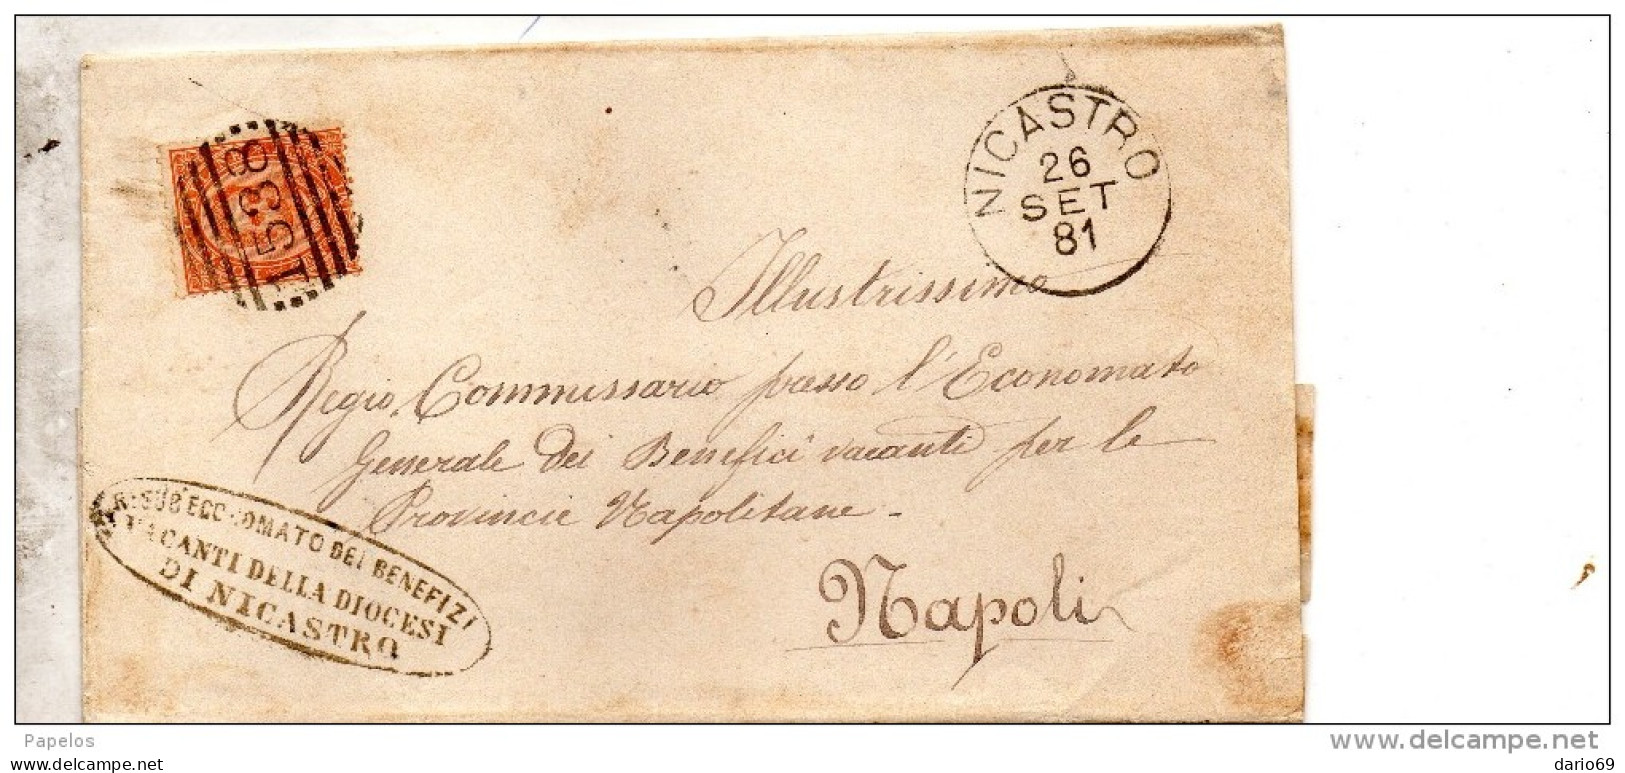 1538
NICASTRO
26
SET
81
Illustrissimo
Regio Commissario presso l'Economato
Generale dei Benefici vacanti per le
Provincie Napolitane -
Napoli
R. SUB ECONOMATO DEI BENEFIZI
VACANTI DELLA DIOCESI
DI NICASTRO
Papelos
www.delcampe.net
dario69